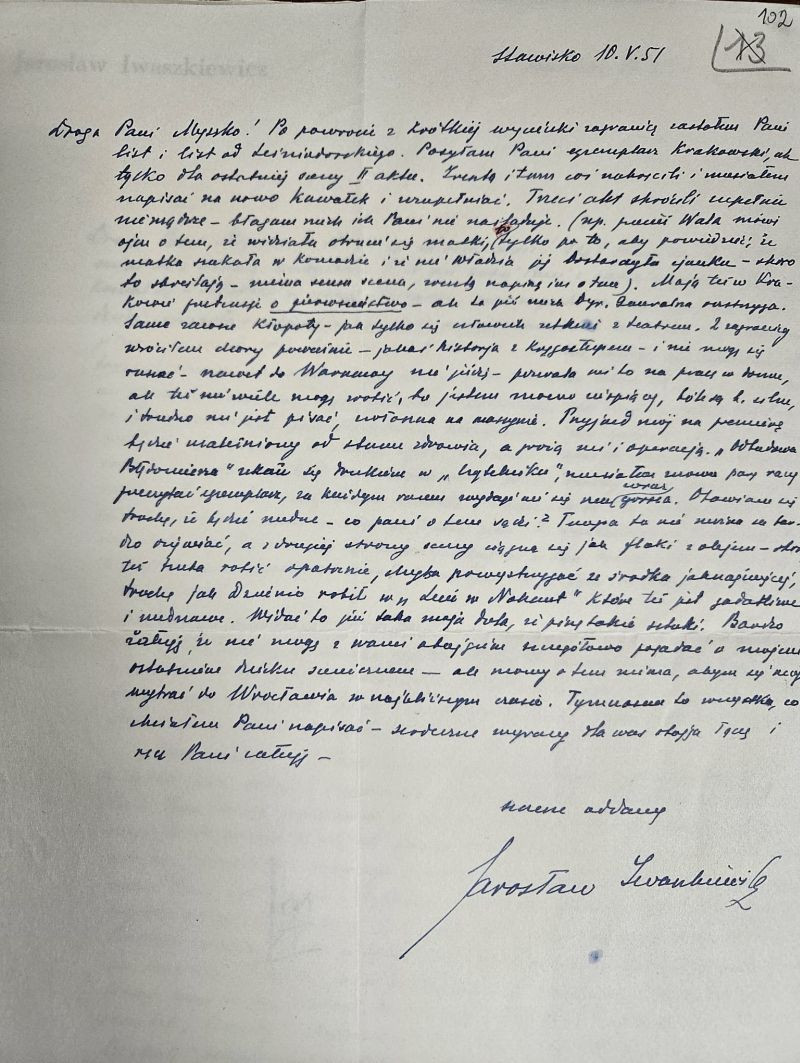 102
13
Jarosław Iwaszkiewicz
Stawisko 10.V.51
Droga Pani Myszko! Po powrocie z krótkiej wycieczki zagranicę zastałem Pani
list i list od Leśniodorskiego. Posyłam Pani egzemplarz Krakowski, ale
tylko dla ostatniej sceny II aktu. Zresztą i tam coś nabroili i musiałem
napisać na nowo kawałek i uzupełniać. Trzeci akt skrócili zupełnie
niemądrze – błagam niech ich Pani nie naśladuje. (np. Wala mówi
ojcu o tem, że widziała otrucie się matki, to tylko po to, aby powiedzieć, że
matka szukała w komodzie i że nie Władzia jej dostarczyła cjanku – skoro
to skreślają – niema sensu scena, zresztą napiszę im o tem). Mają też w Kra-
kowie pretensje o pierwszeństwo – ale to już niech Dyr. rozstrzyga.
Same zawsze kłopoty – jak tylko się człowiek zetknie z teatrem. Z zagranicy
wróciłem chory poważnie – jakaś historja z kręgosłupem – i nie mogę się
ruszać – nawet do Warszawy nie jeżdżę – pozwala mi to na pracę w domu,
ale też niewiele mogę robić, bo jestem mocno cierpiący, bóle są b. silne,
i trudno mi jest pisać, zwłaszcza na maszynie. Przyjazd mój na premierę
będzie uzależniony od stanu zdrowia, a grozi mi i operacja. „Odbudowa
Błędomierza" ukaże się drukiem w „Czytelniku", musiałem znowu parę razy
przeczytać egzemplarz, za każdym razem wydaje mi się coraz gorsza. Obawiam się
trochę, że będzie nudne – co pani o tem sądzi? Tempa to nie można za bar-
dzo ożywiać, a z drugiej strony sceny ciągną się jak flaki z olejem – skró-
też trzeba robić opatrznie, chyba powystrzygać ze środka jaknajwięcej,
trochę jak Dziunio robił w „Lecie w Nohant" które też jest gadatliwe
i nudnawe. Widać to już taka moja dola, że piszę takie sztuki. Bardzo
żałuję, że nie mogę z wami obojgiem szczegółowo pogadać o mojem
ostatniem dziecku scenicznem – ale mowy o tem niema, abym się mógł
wybrać do Wrocławia w najbliższym czasie. Tymczasem to wszystko, co
chciałem Pani napisać – serdeczne wyrazy dla was obojga łączę i
rączki Pani całuję –
szczerze oddany
Jarosław Iwaszkiewicz